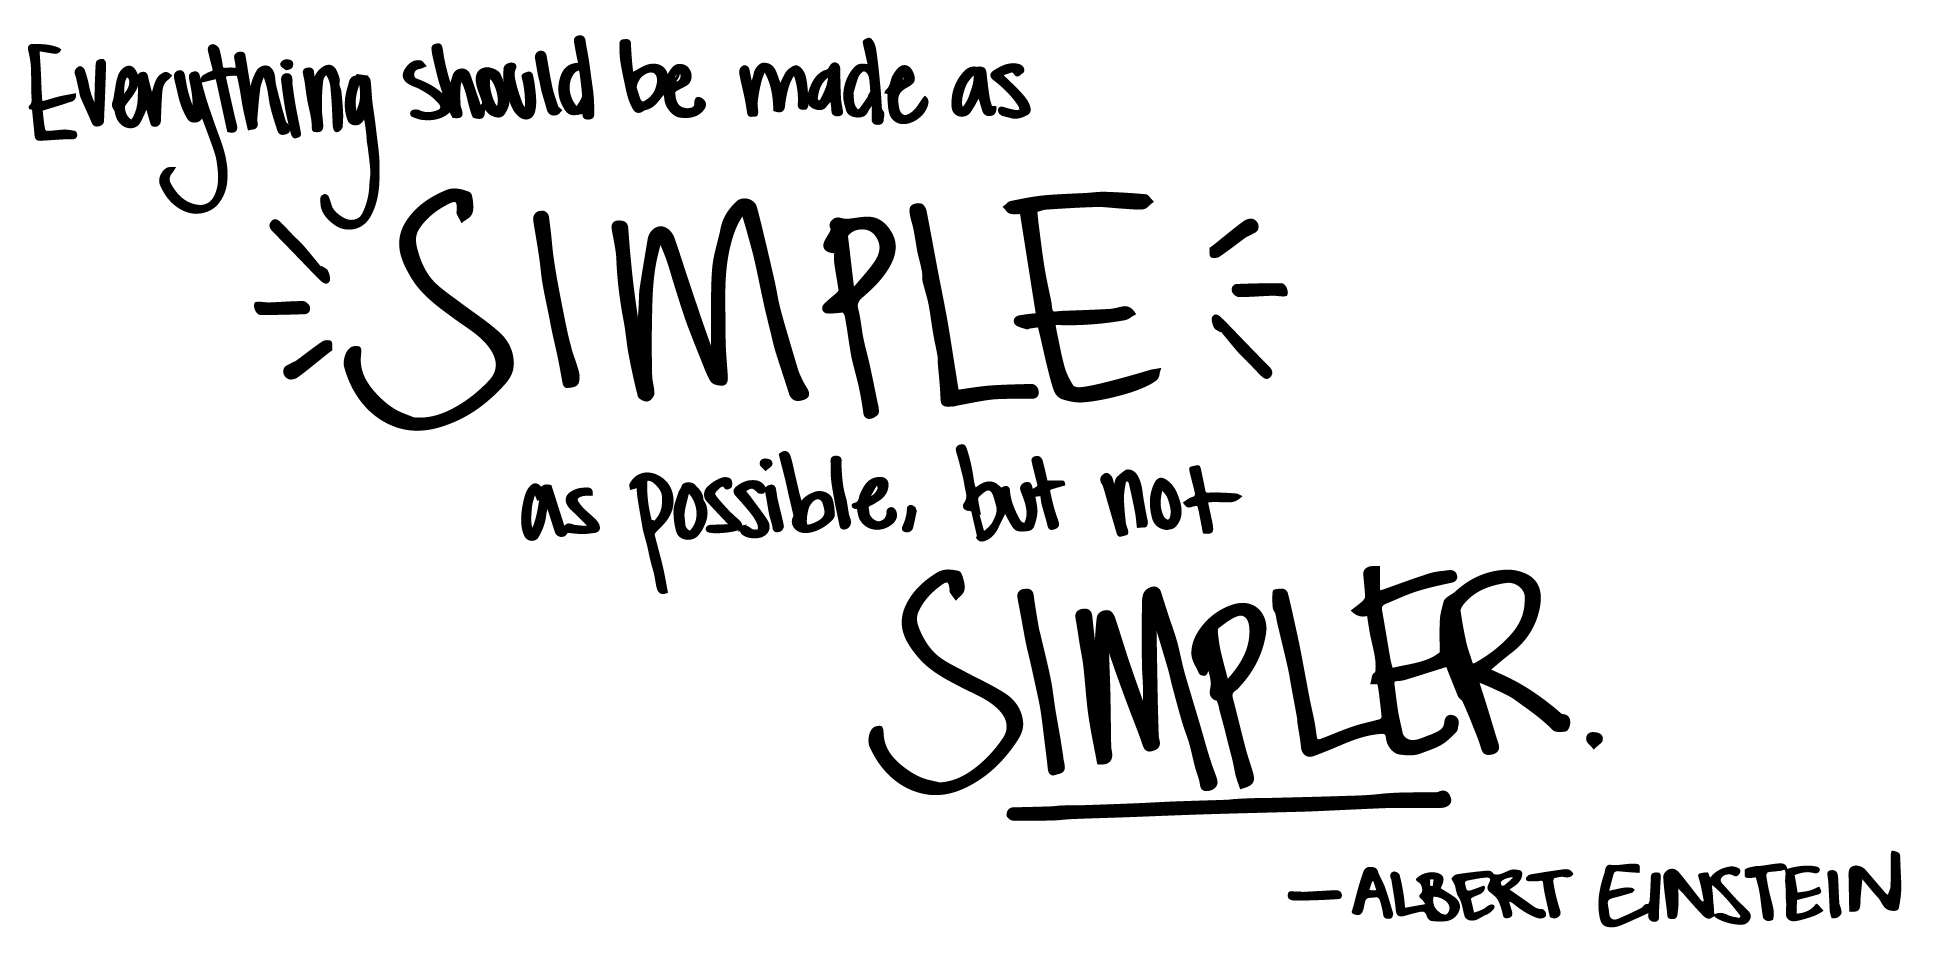 Everything should be made as
SIMPLE
as possible, but not
SIMPLER.
—ALBERT EINSTEIN